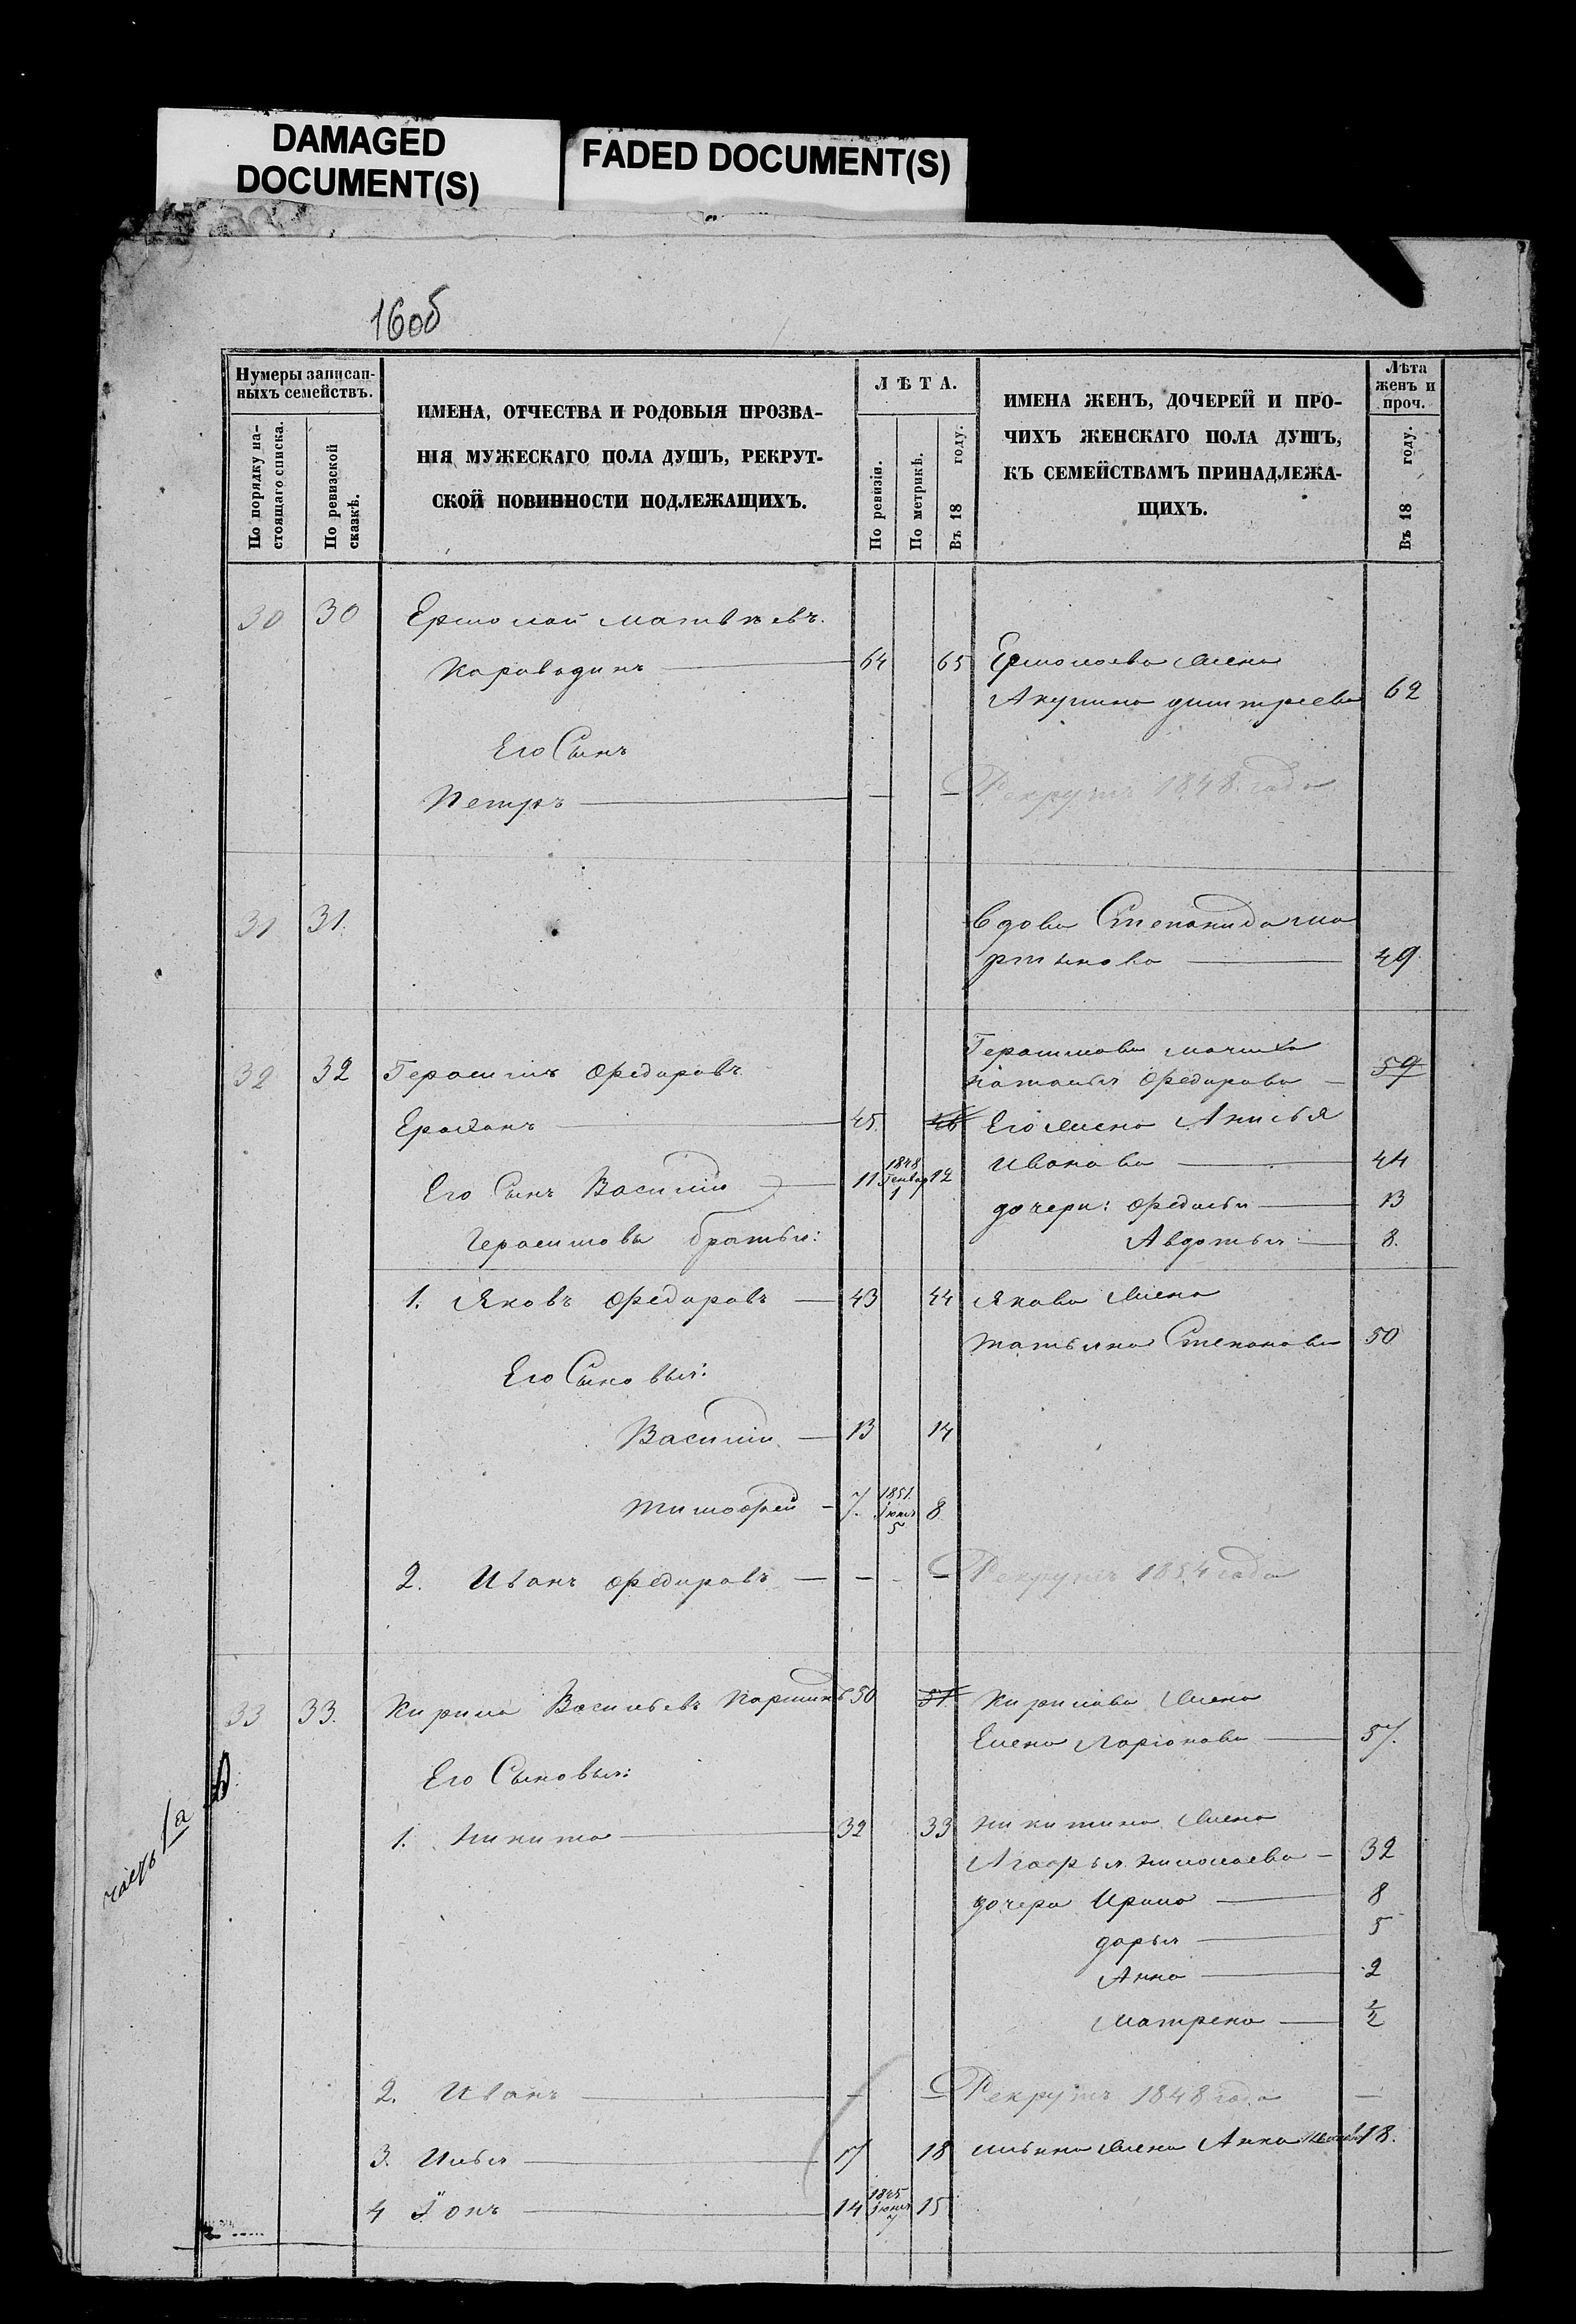 DAMAGED DOCUMENT(S)
FADED DOCUMENT(S)
16об
Нумеры записан-
ныхъ семействъ.
По порядку на-
стоящаго списка.
По ревизской
сказкѣ.
ИМЕНА, ОТЧЕСТВА И РОДОВЫЯ ПРОЗВА-
НІЯ МУЖЕСКАГО ПОЛА ДУШЪ, РЕКРУТ-
СКОЙ ПОВИННОСТИ ПОДЛЕЖАЩИХЪ.
ЛѢТА.
По ревизіи.
По метрикѣ.
Въ 18 году.
ИМЕНА ЖЕНЪ, ДОЧЕРЕЙ И ПРО-
ЧИХЪ ЖЕНСКАГО ПОЛА ДУШЪ,
КЪ СЕМЕЙСТВАМЪ ПРИНАДЛЕЖА-
ЩИХЪ.
Лѣта
женъ и
проч.
Въ 18 году.
30 30 Ермолай Матвѣевъ.
Караводинъ — 64 65 Ермолаева жена
Акулина Дмитреева 62
Его Сынъ
Петръ — — — Рекрутъ 1848 года
31 31. Вдова Степанида Ма
ртынова — 49
Герасимова мачиха
32 32 Герасимъ Федоровъ Наталья Федорова — 59
— 45. 46 Его жена Анисья
Иванова — 44
Его Сынъ Василій — 11 1848 Генвар 1 12
дочери: Федосья — 13
Герасимовы братья: Авдотья — 8.
1. Яковъ Федоровъ — 43 44 Якова жена
Татьяна Степанова 50
Его Сыновья:
Василій — 13 14
Тимофей — 7. 1851 Іюня 5 8
2. Иванъ Федоровъ — — - — Рекрутъ 1854 года
33 33. Кирила Васильевъ Паршинъ 50 51 Кирилова жена
Елена Ларіонова — 57.
Его Сыновья:
1. Никита — 32 33 Никитина жена
Агафья Николаева — 32
дочери Ирина — 8
Дарья — 5
Анна — 2
Матрена — 1/2
2. Иванъ — — — Рекрутъ 1848 года —
3. Илья — 17 18 Ильина жена Анна 18.
4 Іонъ — 14 1845 15